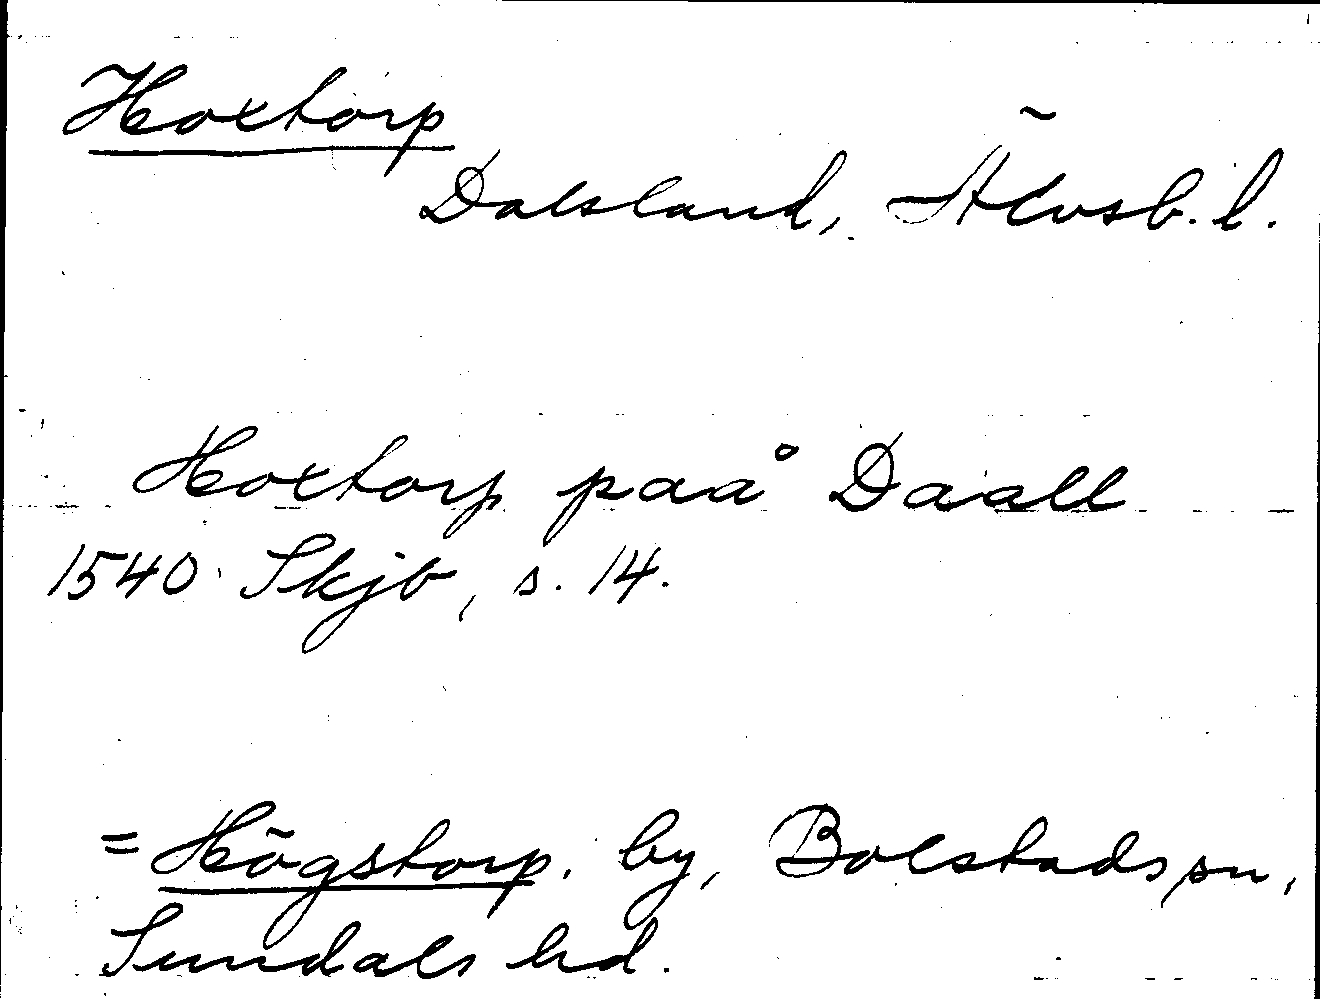 Hoxtorp
Dalsland, Älvsb. l.
Hoxtorp paå Daall
1540 Skjb, s. 14.
= Högstorp, by, Bolstads sn,
Sundals hd.